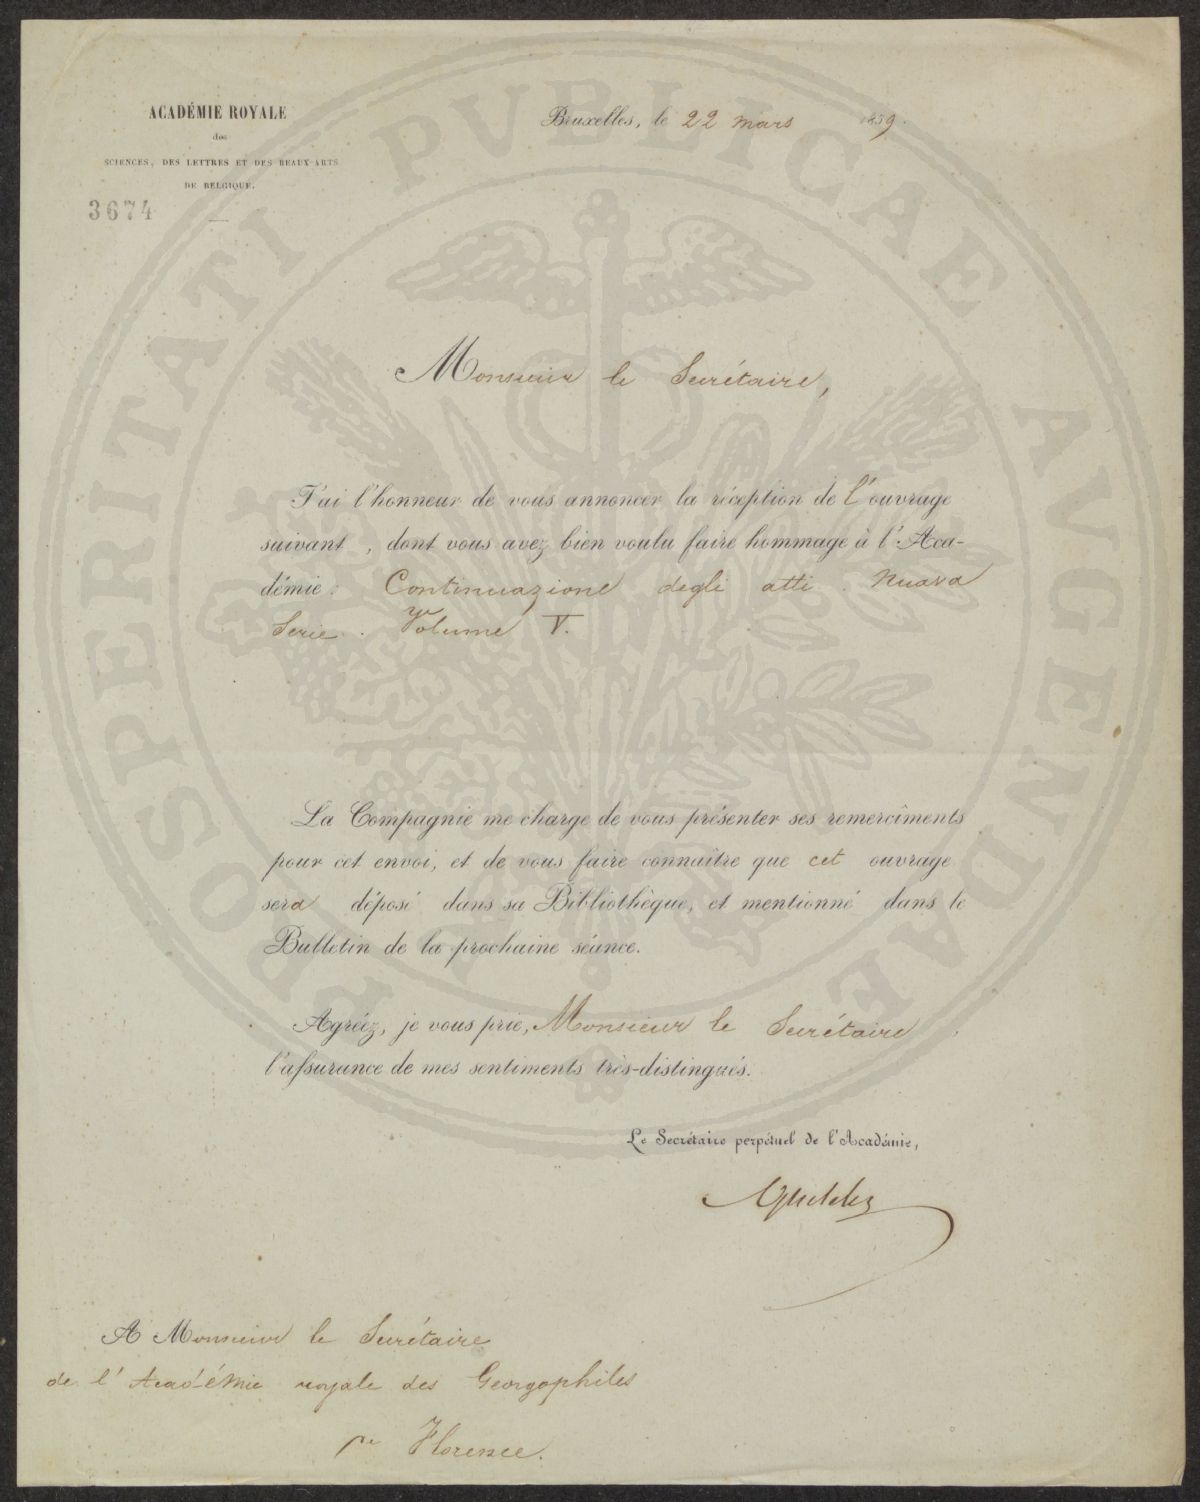 ACADÉMIE ROYALE
des
SCIENCES, DES LETTRES ET DES BEAUX-ARTS
DE BELGIQUE.
3674
Bruxelles, le 22 mars 1859.
Monsieur le Secrétaire,
J'ai l'honneur de vous annoncer la réception de l'ouvrage
suivant, dont vous avez bien voulu faire hommage à l'Aca-
démie: Continuazione degli atti. Nuova
Serie. Volume V.
La Compagnie me charge de vous présenter ses remercîments
pour cet envoi, et de vous faire connaître que cet ouvrage
sera déposé dans sa Bibliothèque, et mentionné dans le
Bulletin de la prochaine séance.
Agréez, je vous prie, Monsieur le Secrétaire
l'assurance de mes sentiments très-distingués.
Le Secrétaire perpétuel de l'Académie,
A Monsieur le Secrétaire
de l'Académie royale des Georgophiles
Florence.
PROSPERITATI PVBLICAE AVGENDAE